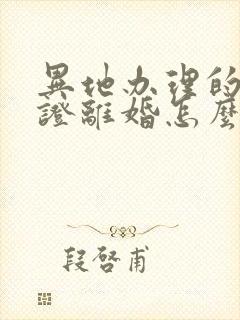 異地办理的
證離婚怎麼
段啓甫